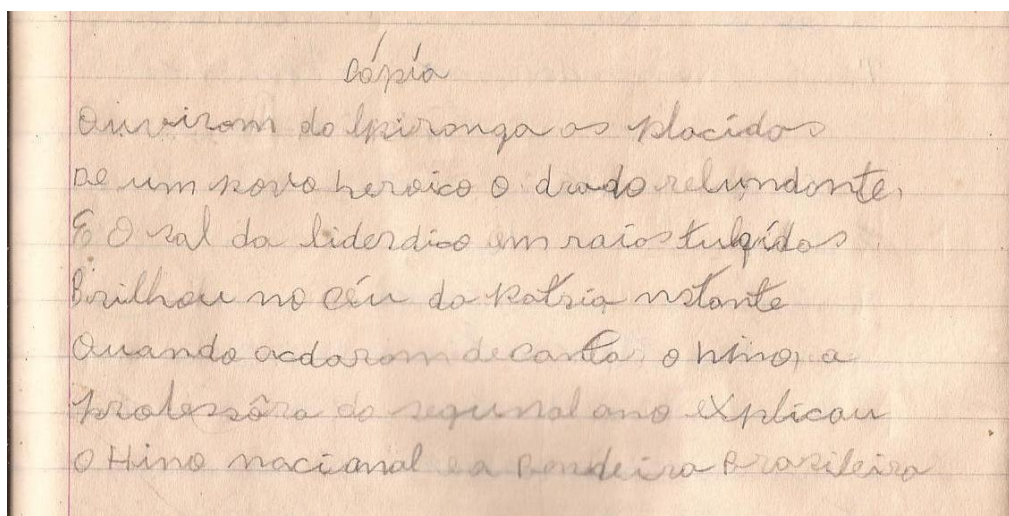 Cópia
Ouviram do Ipiranga as placidas
De um povo heroico o drado relundante,
E O sal da liderdiao em raios tulgidos
Brilhou no céu da Patria nstante
Quando acdaram de canta o hino, a
professôra do segunal ano explicou
O Hino nacianal e a Bandeira Brasileira